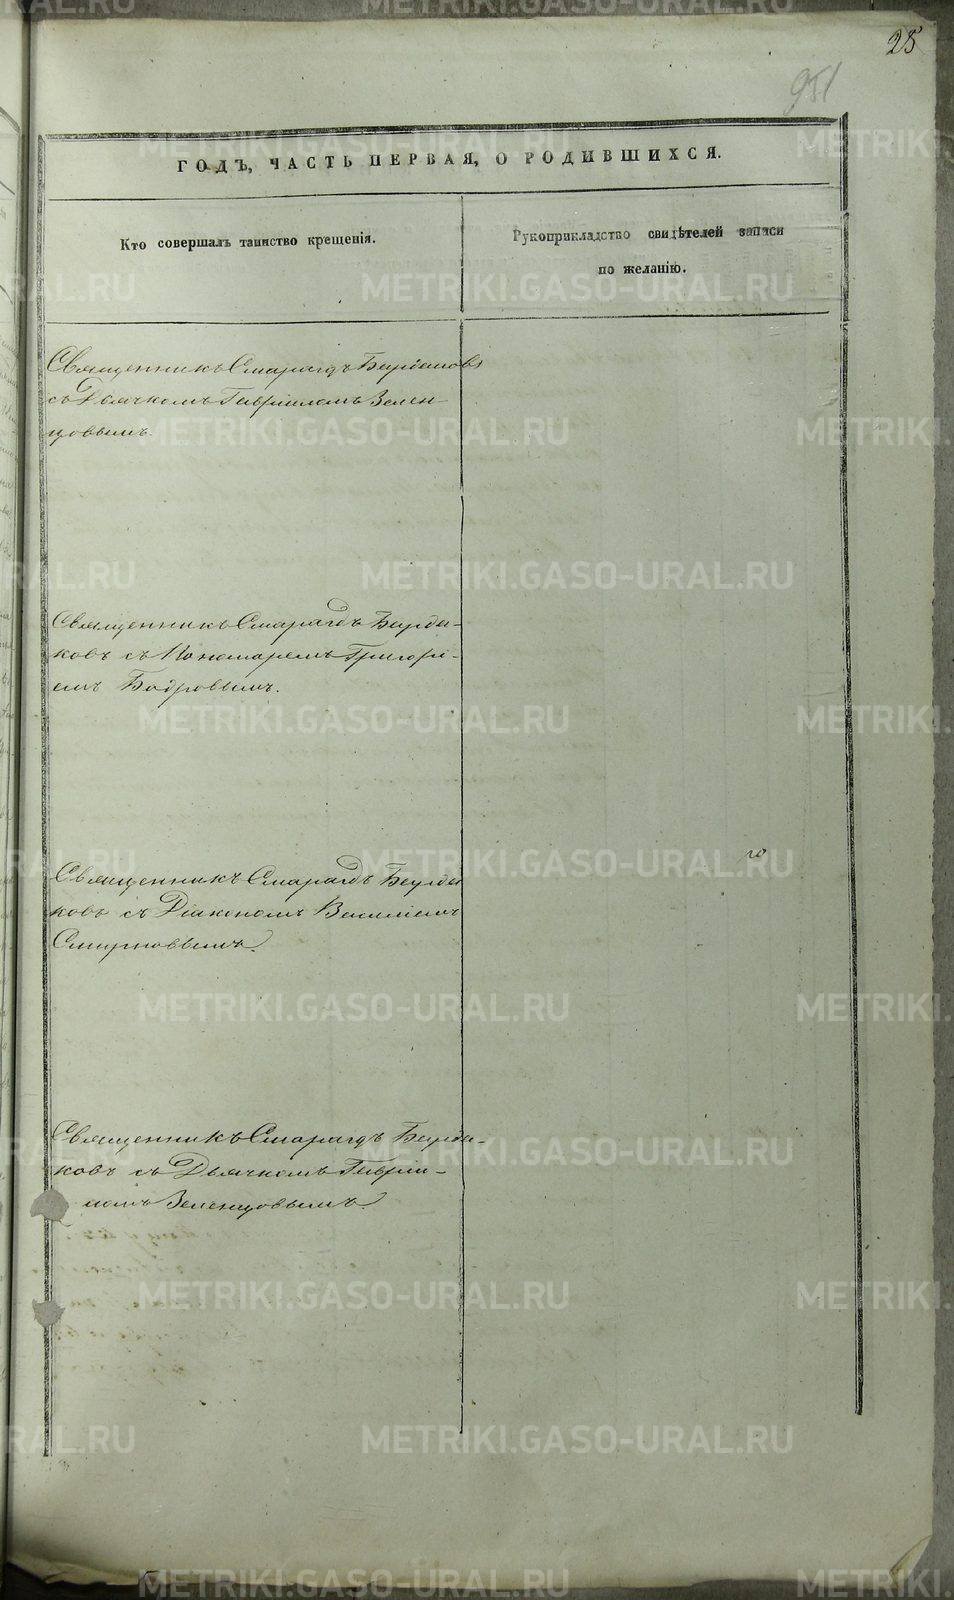 25
951
ГОДЪ, ЧАСТЬ ПЕРВАЯ, О РОДИВШИХСЯ.
Кто совершалъ таинство крещенія.
Рукоприкладство свидѣтелей записи
по желанію.
Священникъ Смарагдъ Бурдаковъ
съ Дьячкомъ Гавріиломъ Зелен-
цовымъ.
Священникъ Смарагдъ Бурда-
ковъ съ Пономаремъ Григорі-
емъ Бодровымъ.
Священникъ Смарагдъ Бурда
ковъ съ Діакономъ Василіемъ
Смирновымъ.
Священникъ Смарагдъ Бурда-
ковъ съ Дьячкомъ Гавріи-
ломъ Зеленцовымъ.
METRIKI.GASO-URAL.RU